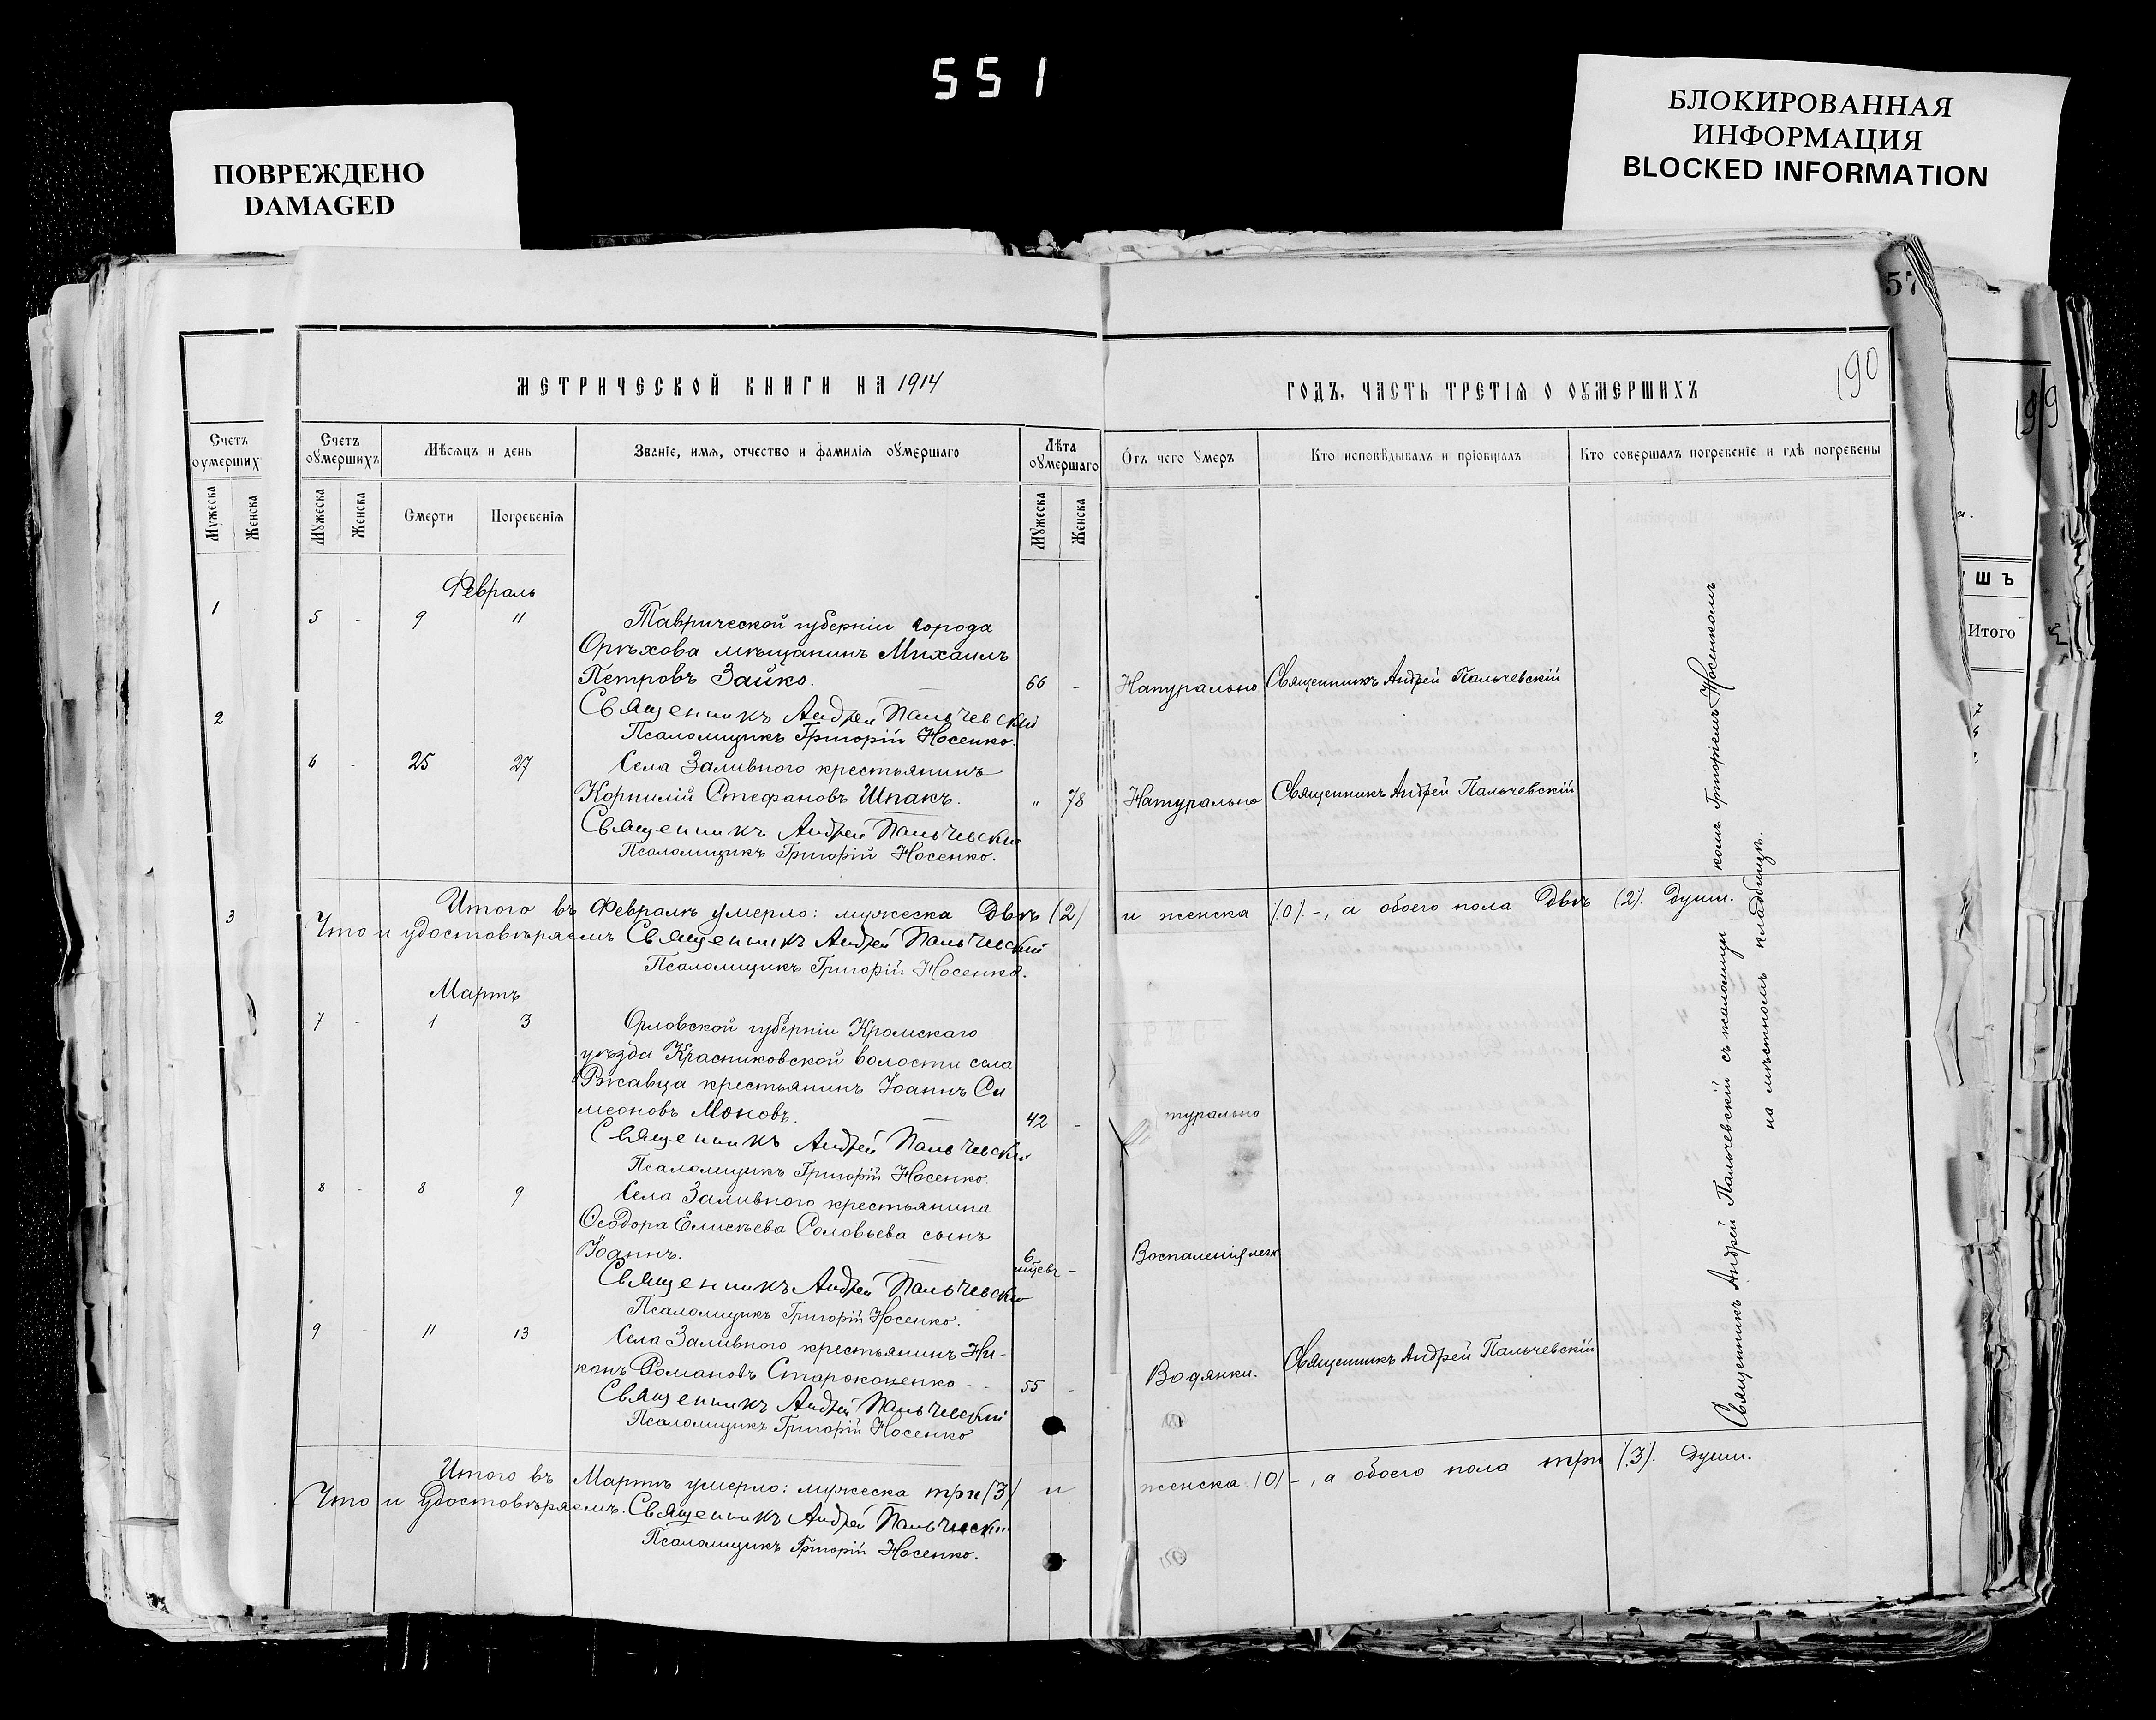 551
ПОВРЕЖДЕНО
DAMAGED
БЛОКИРОВАННАЯ
ИНФОРМАЦИЯ
BLOCKED INFORMATION
57
190
МЕТРИЧЕСКОЙ КНИГИ НА 1914
ГОДЪ, ЧАСТЬ ТРЕТІЯ О ОУМЕРШИХЪ
Счетъ оумершихъ
Мѣсяцъ и день
Званіе, имя, отчество и фамилія оумершаго
Лѣта оумершаго
Отъ чего умеръ
Кто исповѣдывалъ и пріобщалъ
Кто совершалъ погребеніе и гдѣ погребены
Мужеска
Женска
Смерти
Погребенія
Мужеска
Женска
Февраль
5 - 9 11 Таврической губерніи города
Орѣхова мѣщанинъ Михаилъ
Петровъ Зайко. 66 - Натурально Священникъ Андрей Пальчевскій
Священникъ Андрей Пальчевскій
Псаломщикъ Григорій Носенко.
6 - 25 27 Села Заливного крестьянинъ
Корнилій Стефановъ Шпакъ. " 78 Натурально Священникъ Андрей Пальчевскій
Священникъ Андрей Пальчевскій
Псаломщикъ Григорій Носенко.
Итого въ Февралѣ умерло: мужеска Двѣ (2) и женска (0) -, а обоего пола Двѣ (2). души.
Что и удостовѣряемъ Священникъ Андрей Пальчевскій
Псаломщикъ Григорій Носенко.
Мартъ
7 - 1 3 Орловской губерніи Кромскаго
уѣзда Красниковской волости села
Ржавца крестьянинъ Іоаннъ Си
меоновъ Моновъ. 42 - турально
Священникъ Андрей Пальчевскій
Псаломщикъ Григорій Носенко.
8 - 8 9 Села Заливного крестьянина
Ѳеодора Елисѣева Соловьева сынъ
Іоаннъ. 6 мцевъ - Воспаленія легк
Священникъ Андрей Пальчевскій
Псаломщикъ Григорій Носенко.
9 - 11 13 Села Заливного крестьянинъ Ни-
конъ Романовъ Староконенко 55 - Водянки. Священникъ Андрей Пальчевскій
Священникъ Андрей Пальчевскій
Псаломщикъ Григорій Носенко
Итого въ Мартѣ умерло: мужеска три (3) и женска (0) -, а обоего пола три (3). души.
Что и удостовѣряемъ. Священникъ Андрей Пальчевскій
Псаломщикъ Григорій Носенко.
Священникъ Андрей Пальчевскій съ псаломщи комъ Григоріемъ Носенкомъ
на мѣстномъ кладбищѣ.
Счетъ
оумерших
Мужеска
Женска
1
2
3
ШЪ
Итого